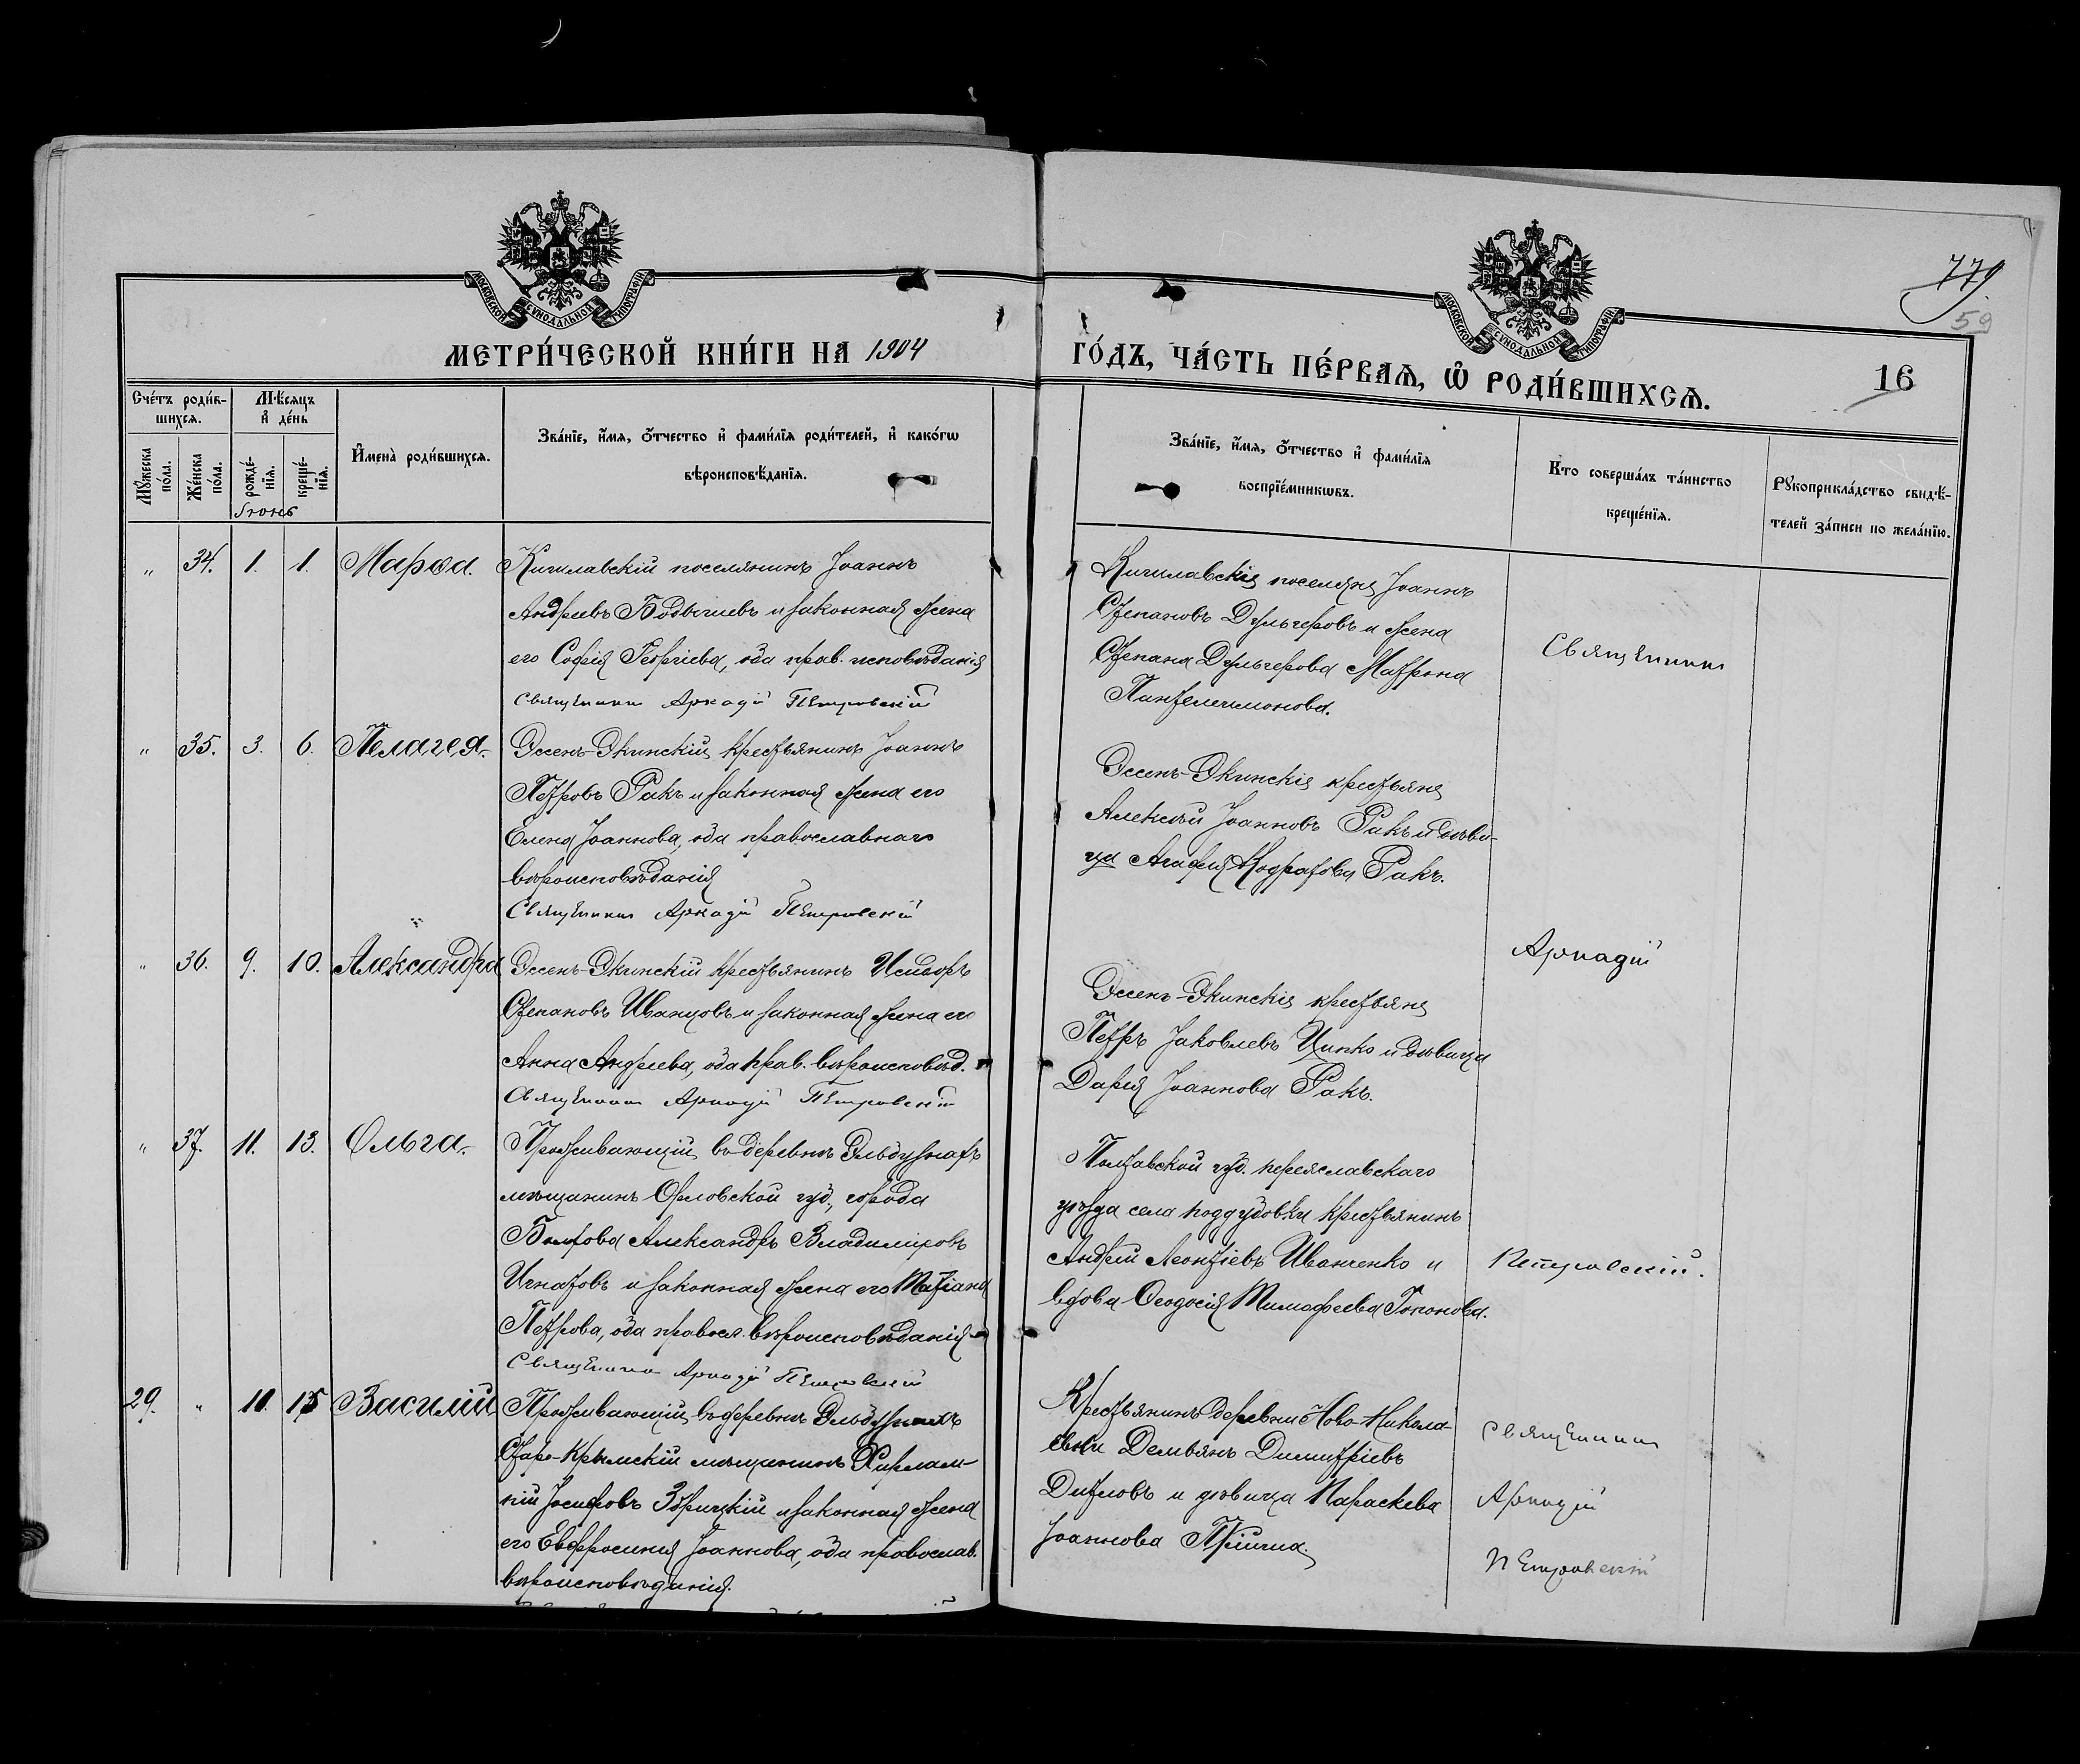 МОСКОВСКОЙ СѴНОДАЛЬНОЙ ТИПОГРАФІИ
МОСКОВСКОЙ СѴНОДАЛЬНОЙ ТИПОГРАФІИ
779
59
МЕТРИ́ЧЕСКОЙ КНИ́ГИ НА 1904
ГО́ДЪ, ЧА́СТЬ ПЕ́РВАѦ, Ѡ҆ РОДИ́ВШИХСѦ.
16
Сче́тъ роди́в-
шихсѧ.
Мѣ́сяцъ
и҆ де́нь
Мꙋ́жеска
по́ла.
Же́нска
по́ла.
рожде́-
нїѧ.
креще́-
нїѧ.
Іюнь
И҆мена̀ роди́вшихсѧ.
Зва́нїе, и҆́мѧ, ѻ҆́тчество и҆ фами́лїѧ роди́телей, и҆ како́гѡ
вѣроисповѣ́данїѧ.
Зва́нїе, и҆́мѧ, ѻ҆́тчество и҆ фами́лїѧ
воспрїе́мникѡвъ.
Кто соверша́лъ та́инство
креще́нїѧ.
Рꙋкоприкла́дство свидѣ́-
телей за́писи по жела́нїю.
„ 34. 1. 1. Марѳа.
Кишлавскій поселянинъ Іоаннъ
Андреевъ и законная жена
его Софія Георгіева, оба прав. исповѣданія
Священникъ Аркадій Петровскій
Кишлавскіе поселяне Іоаннъ
Стефановъ Дульгеровъ и жена
Стефана Дульгерова Матрона
Пантелеимонова.
Священникъ
„ 35. 3. 6. Пелагея.
Эссенъ-Экинскій крестьянинъ Іоаннъ
Петровъ Ракъ и законная жена его
Елена Іоаннова, оба православнаго
вѣроисповѣданія
Священникъ Аркадій Петровскій
Эссенъ-Экинскіе крестьяне
Алексѣй Іоанновъ Ракъ и дѣви-
ца Агафія Кодратова Ракъ.
„ 36. 9. 10. Александра
Эссенъ-Экинскій крестьянинъ Исидоръ
Стефановъ Иванцовъ и законная жена его
Анна Андреева, оба прав. вѣроисповѣд.
Священникъ Аркадій Петровскій
Эссенъ-Экинскіе крестьяне
Петръ Іаковлевъ Ципко и дѣвица
Дарія Іоаннова Ракъ.
Аркадій
„ 37. 11. 13. Ольга.
Проживающій въ деревнѣ
мѣщанинъ Орловской губ., города
Болхова Александръ Владиміровъ
Игнатовъ и законная жена его Татіана
Петрова, оба правосл. вѣроисповѣданія
Священникъ Аркадій Петровскій
Полтавской губ. переяславскаго
уѣзда села крестьянинъ
Андрей Леонтіевъ Иванченко и
вдова Ѳеодосія Тимофеева
Петровскій.
29. „ 11. 15 Василій
Проживающій въ деревнѣ
Старо-Крымскій мѣщанинъ Харлам-
пій Іосифовъ Збрицкій и законная жена
его Евфросинія Іоаннова, оба православ.
вѣроисповѣданія.
Крестьянинъ деревни Ново-Никола-
евки Демьянъ Димитріевъ
и дѣвица Параскева
Іоаннова
Священникъ
Аркадій
Петровскій